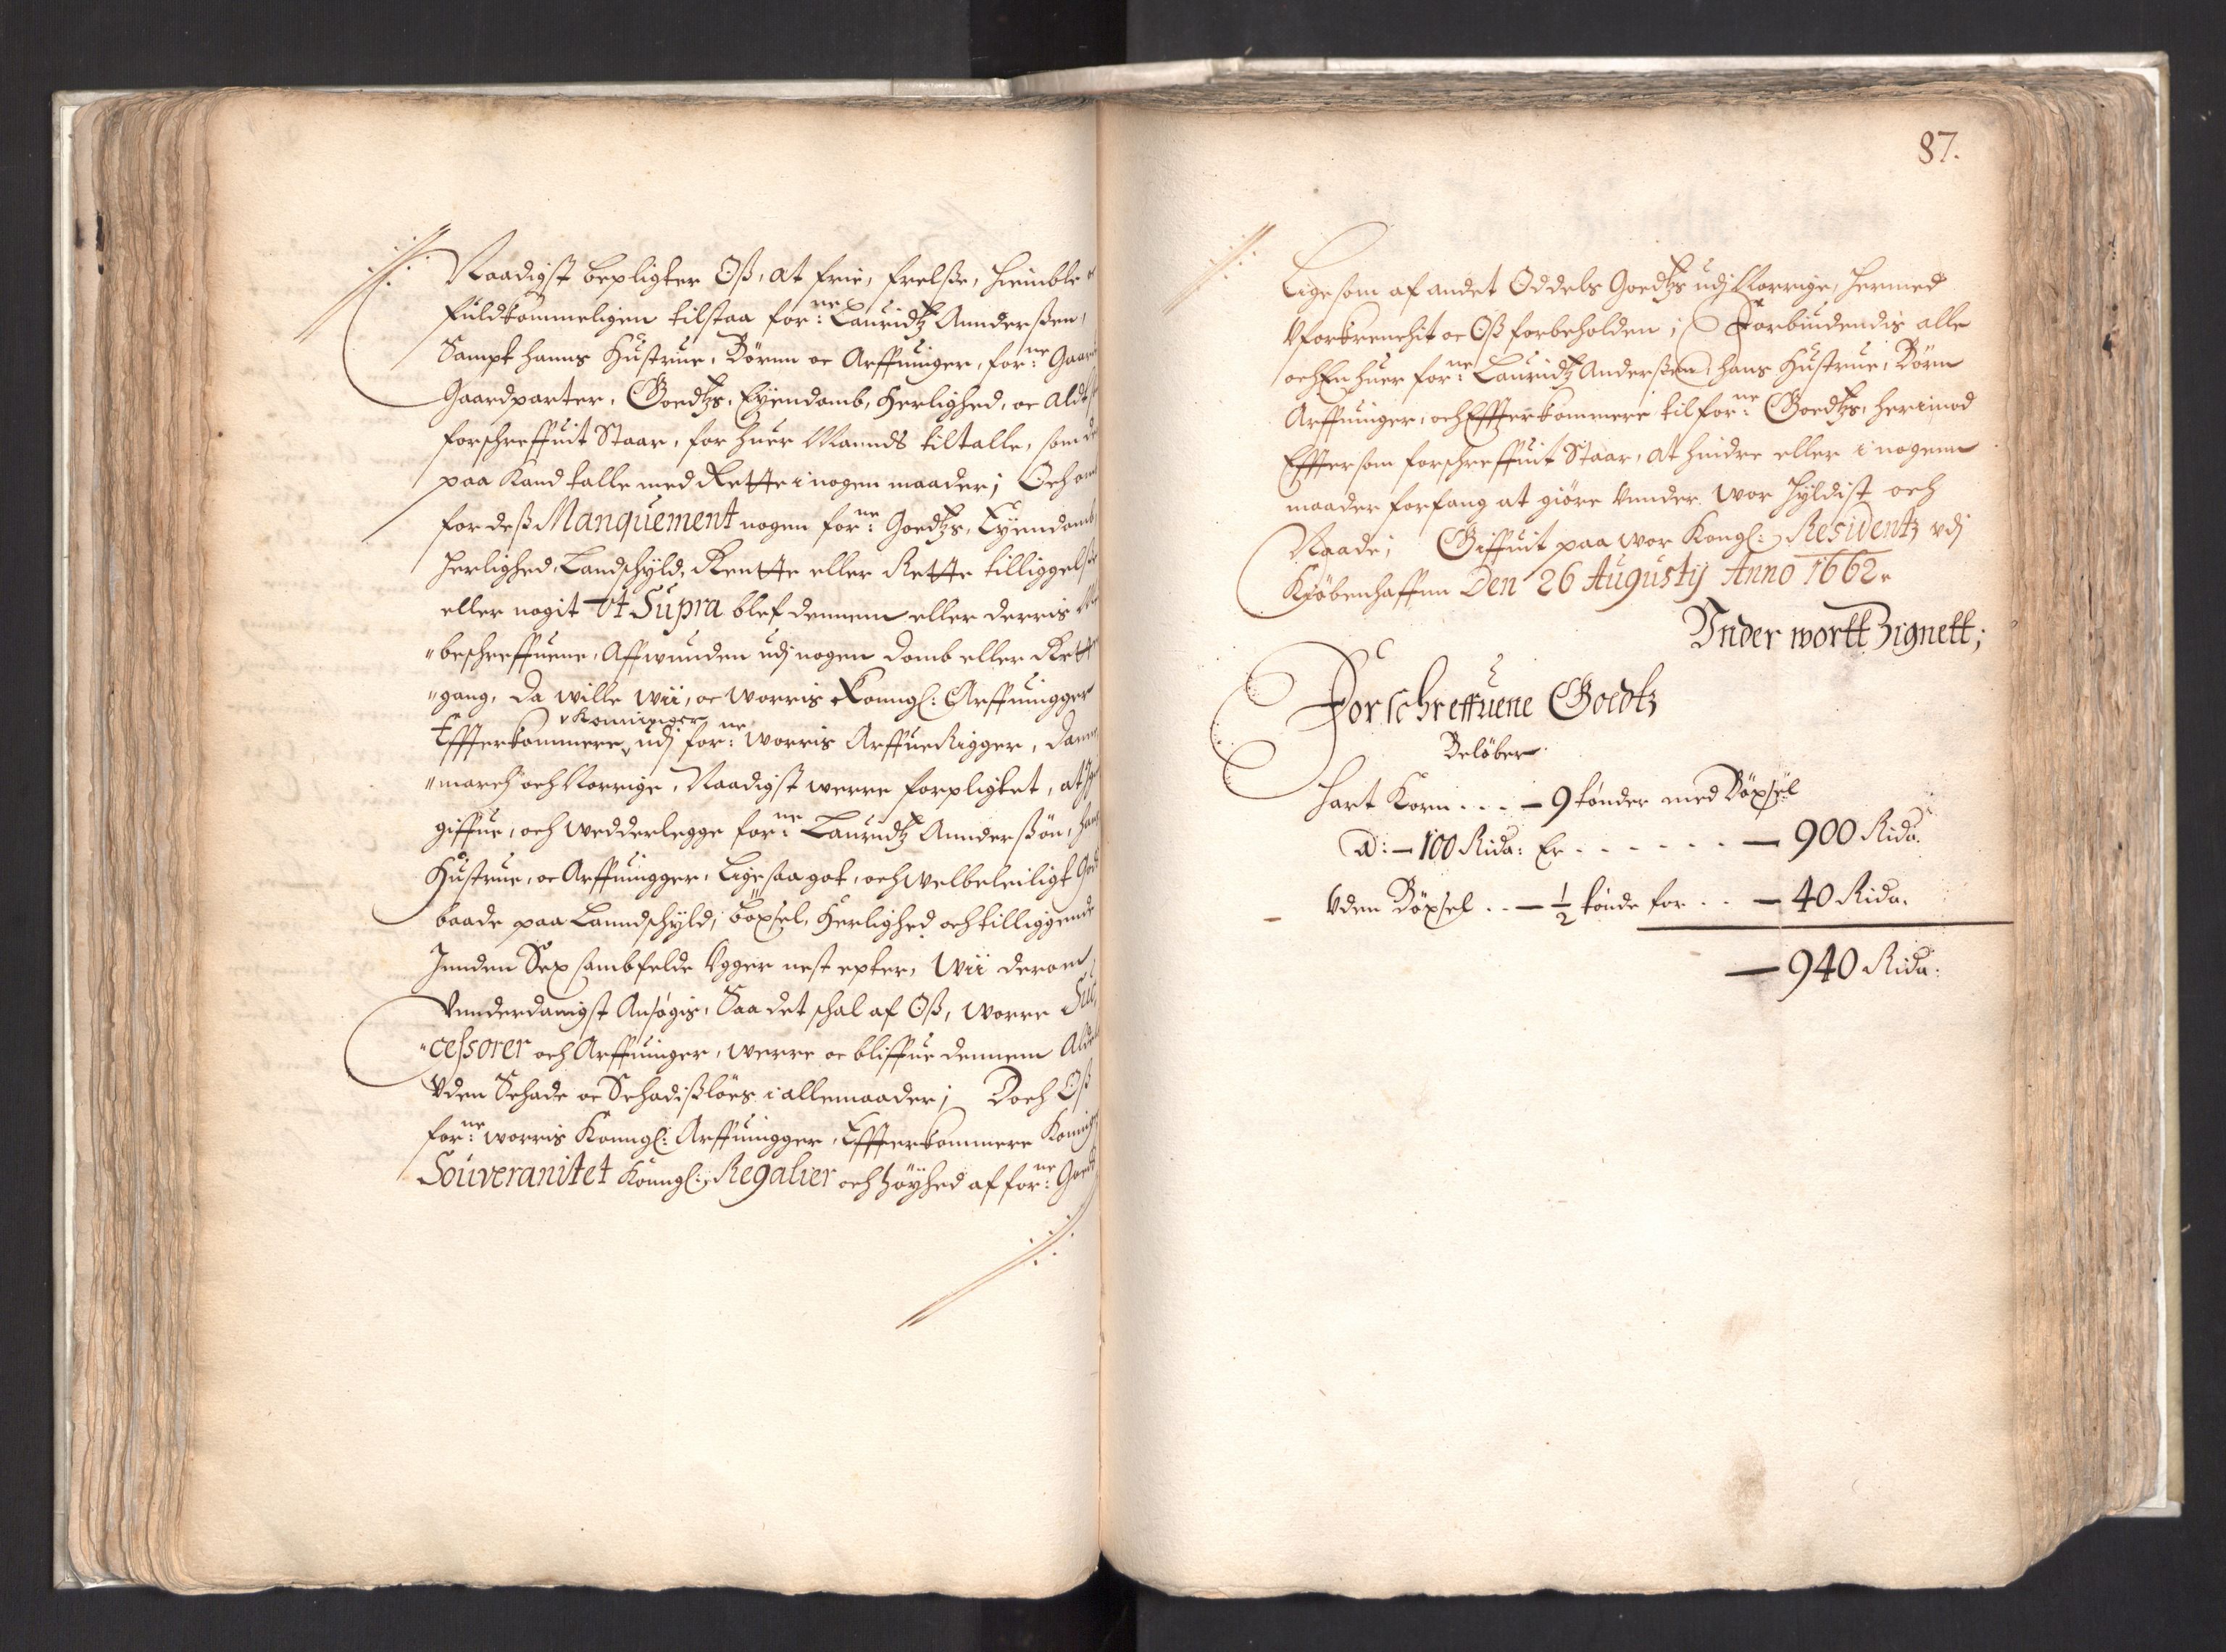 Naadigst bepligter Oß, at frie, frelße, hiemble
fuldkommeligen tilstaa for:ne Lauridtz Annderßen,
Sampt hanns Hustrue, Börnn oc Arffuinger, for:ne
Gaardparter, Goedtzs, Eyendomb, Herlighed, oc
forschreffuit Staar, for huer Mannds tiltalle, som
paa kand talle med Rette i nogen maader; Och om
for deß Manquement nogen for:ne Goedtzs, Eyendomb,
Herlighed, Landschyld, Rentte eller Rette tilliggelße
eller nogit Ut Supra blef dennem eller derris
"beschreffuene, Affwunden udj nogen domb eller Rett
"gang, da wille Wii, oc worris Konngl: Arffuingger
Effterkommere Konninger udj for:ne worris ArffueRigger, Dann
"march och Norrige, Naadigst werre forpligtet, at
giffue, och Wedderlegge for:ne Lauridtz Annderßön,
Hustrue, oc Arffuingger, Lige saa got, och welbeleiligt
baade paa Lanndschyld, böxsel, Herlighed och tilliggende
Innden Sex sambfelde Vgger nest epter, Wii derom
Vnnderdanigst Ansögis, Saa det schal af Oß, worre Suc
"cessorer och Arffuinger, werre oc bliffue dennem
Vden Schade oc Schadißlöes i alle maader; Doch Oß
for:ne worris Konngl: Arffuingger, Effterkommere
Souveranitet Konngl: Regalier och höyhed af for:ne
87.
Ligesom af andet Oddels Goedtzs udj Norrige, hermed
Vforkrenchit oc Oß forbeholden; Forbiudendis alle
och En huer for:ne Lauridtz Anderßen, hans Hustrue, Börn
Arffuinger, och Effterkommere til for:ne Goedtzs, herimod
Efftersom forschreffuit Staar, at hindre eller i nogenn
maader forfang at giöre Vnnder Wor hyldist och
Naade; Giffuit paa Wor Kongl: Residentz vdj
Kiöbenhaffnn Den 26 Augustij Anno 1662.
Vnder wortt Zignett;
Forschreffuene Goedtz
Belöber
Hart Korn . . . – 9 tönder med Böxsel
a: – 100 Rida: Er . . . . . . – 900 Rida.
Vden Böxsel . . – 1/2 tönde for . . – 40 Rida.
– 940 Rida: